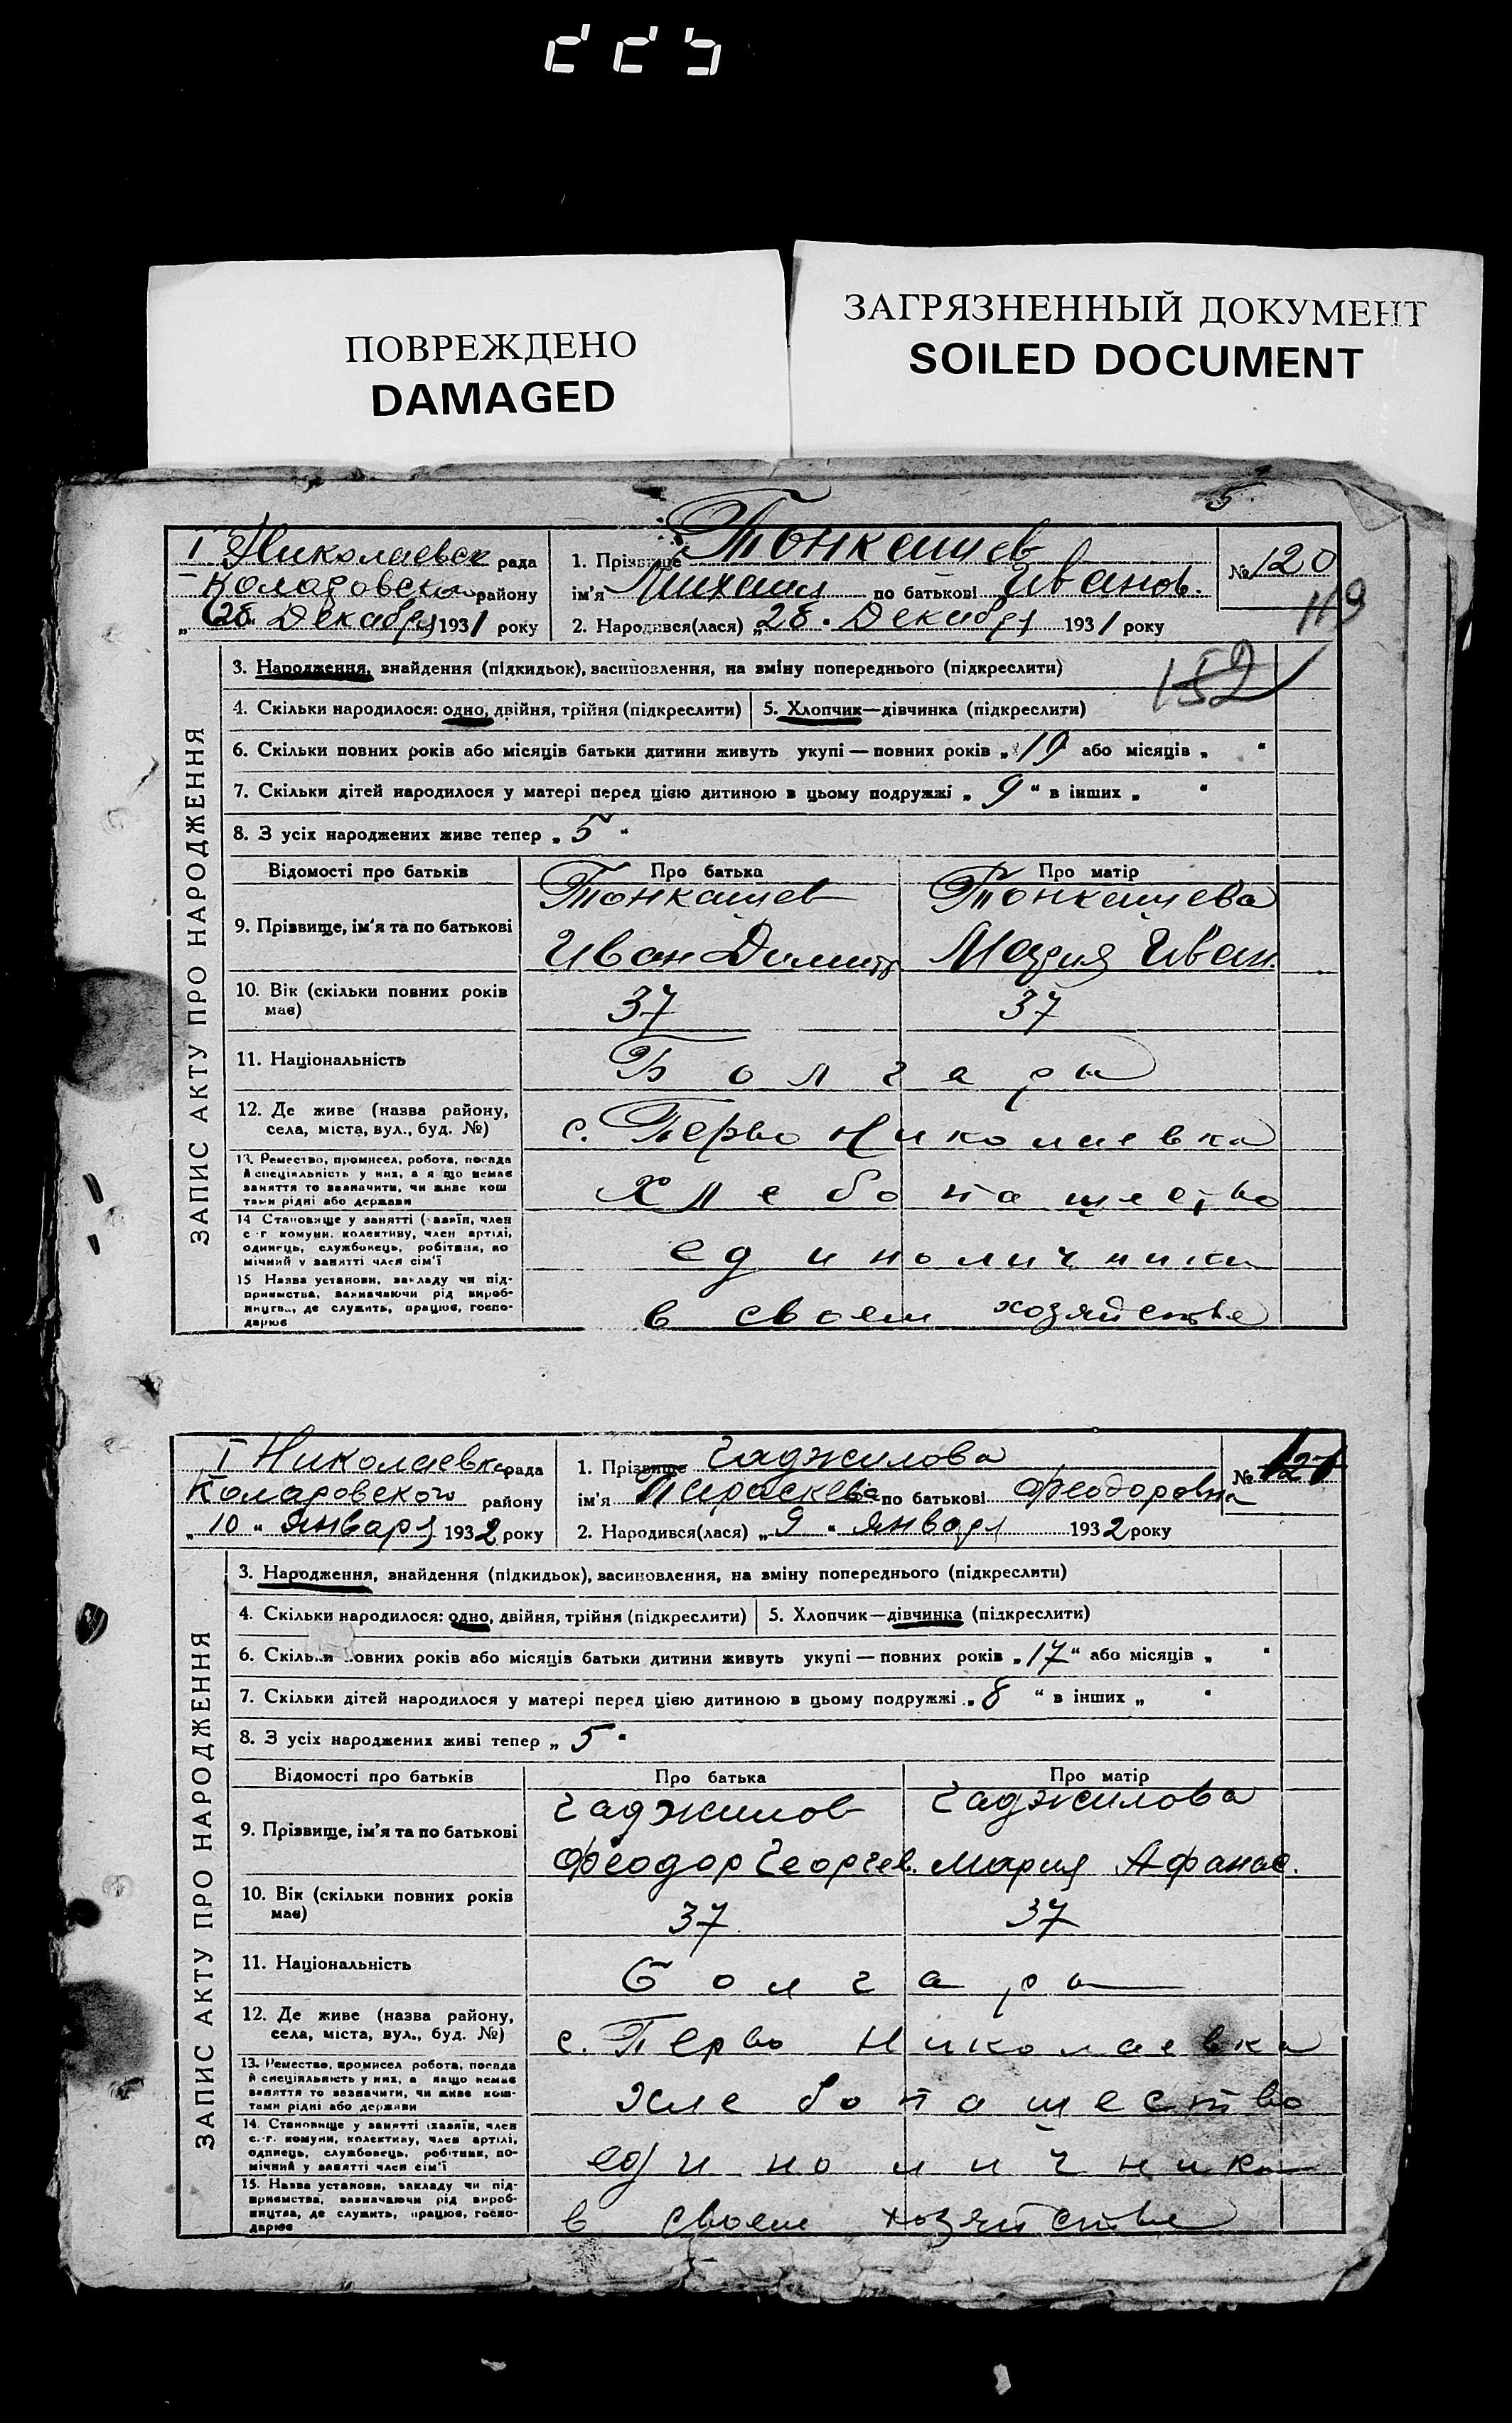 225
ПОВРЕЖДЕНО
DAMAGED
ЗАГРЯЗНЕННЫЙ ДОКУМЕНТ
SOILED DOCUMENT
5
ЗАПИС АКТУ ПРО НАРОДЖЕННЯ
I Николаевск рада
Коларовского району
„28“ Декабря 1931 року
1. Прізвище Тонкошев
ім'я Михаил по батькові Иванов.
2. Народився(лася) „28“ Декабря 1931 року
№ 120
119
152
3. Народження, знайдення (підкидьок), васиновлення, на зміну попереднього (підкреслити)
4. Скільки народилося: одно, двійня, трійня (підкреслити)
5. Хлопчик—дівчинка (підкреслити)
6. Скільки повних років або місяців батьки дитини живуть укупі — повних років „19“ або місяців „ “
7. Скільки дітей народилося у матері перед цією дитиною в цьому подружжі „9“ в інших „ “
8. З усіх народжених живе тепер „5“
Відомості про батьків Про батька Про матір
9. Прізвище, ім'я та по батькові
Тонкошев
Иван Димитр
Тонкошева
Мария Иван.
10. Вік (скільки повних років
має)
37 37
11. Національність
Болгары
12. Де живе (назва району,
села, міста, вул., буд. №)
с. Перво Николаевка
13. Ремество, промисел, робота, посада
й спеціяльність у них, а якщо немає
заняття то зазначити, чи живе кош
тами рідні або держави
Хлебопашество
14 Становище у занятті (хазяїн, член
с-г комуни, колективу, член артілі,
одинець, службовець, робітник, по
мічний у занятті член сім'ї
единоличники
15 Назва установи, закладу чи під-
приємства, зазначаючи рід вироб-
ництва, де служить, працює, госпо-
дарює
в своем хозяйстве
ЗАПИС АКТУ ПРО НАРОДЖЕННЯ
I Николаевка рада
Коларовского району
„10“ Января 1932 року
1. Прізвище Гаджилова
ім'я Параскева по батькові Феодоровна
2. Народився(лася) „9“ Января 1932 року
№ 121
3. Народження, знайдення (підкидьок), васиновлення, на зміну попереднього (підкреслити)
4. Скільки народилося: одно, двійня, трійня (підкреслити)
5. Хлопчик—дівчинка (підкреслити)
6. Скільки повних років або місяців батьки дитини живуть укупі — повних років „17“ або місяців „ “
7. Скільки дітей народилося у матері перед цією дитиною в цьому подружжі „8“ в інших „ “
8. З усіх народжених живі тепер „5“
Відомості про батьків Про батька Про матір
9. Прізвище, ім'я та по батькові
Гаджилов
Феодор Георгев.
Гаджилова
Мария Афанас.
10. Вік (скільки повних років
має)
37 37
11. Національність
болгары
12. Де живе (назва району,
села, міста, вул., буд. №)
с. Перво Николаевка
13. Ремество, промисел робота, посада
й спеціяльність у них, а якщо немає
заняття то зазначити, чи живе кош-
тами рідні або держави
хлебопашество
14. Становище у занятті (хазяїн, член
с.-г. комуни, колективу, член артілі,
одинець, службовець, робітник, по-
мічний у занятті член сім'ї
единоличники
15. Назва установи, закладу чи під-
приємства, зазначаючи рід вироб-
ництва, де служить, працює, госпо-
дарює
в своем хозяйстве